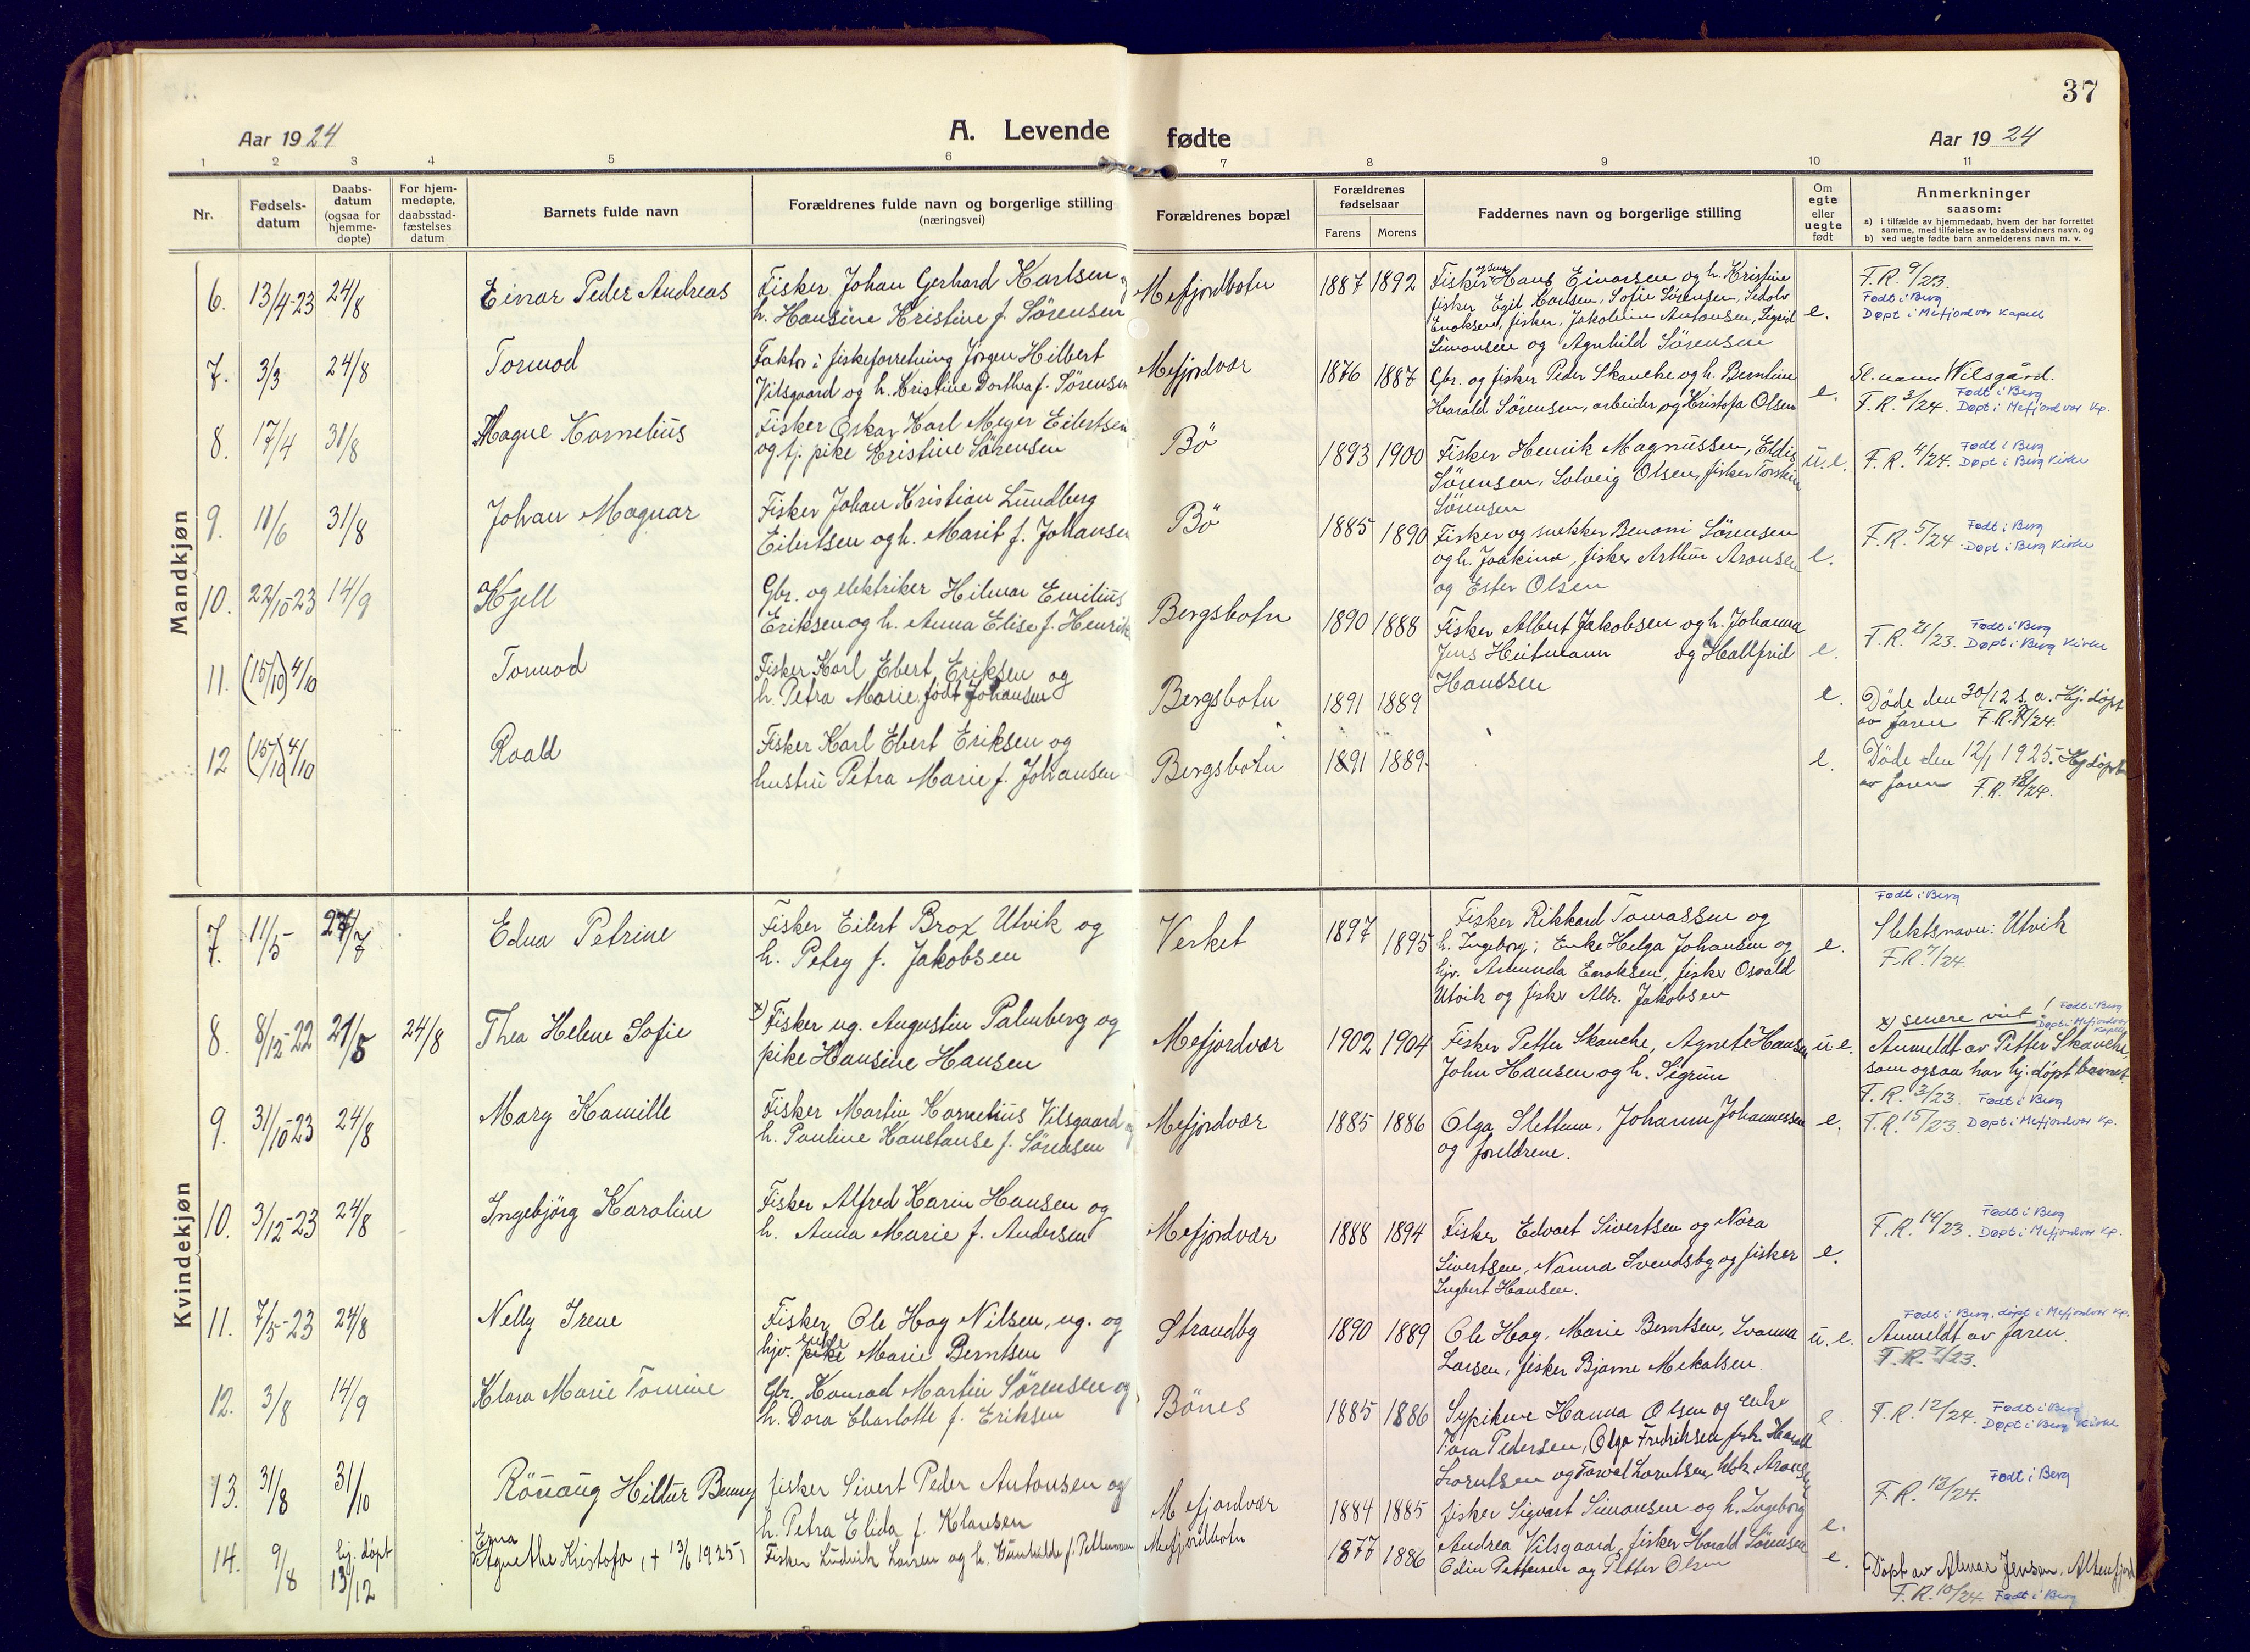 37
Aar 1924
A. Levende fødte
Aar 1924
1 2 3 4 5 6 7 8 9 10 11
Nr.
Fødsels-
datum
Daabs-
datum
(ogsaa for
hjemme-
døpte)
For hjem-
medøpte,
daabsstad-
fæstelses
datum
Barnets fulde navn
Forældrenes fulde navn og borgerlige stilling
(næringsvei)
Forældrenes bopæl
Forældrenes
fødselsaar
Farens Morens
Faddernes navn og borgerlige stilling
Om
egte
eller
uegte
født
Anmerkninger
saasom:
a) i tilfælde av hjemmedaab, hvem der har forrettet
samme, med tilføielse av to daabsvidners navn, og
b) ved uegte fødte barn anmelderens navn m. v.
Mandkjøn
6. 13/4-23 24/8
Einar Peder Andreas
Fisker Johan Gerhard Karlsen og
h. Hansine Kristine f. Sørensen
Mefjordbotn
1887 1892
Fisker Hans Einarsen og h. Kristine
fisker Egil Karlsen, Sofie Sørensen, Sedolv
Enoksen, fisker, Jakobine Antonsen, Sigrid
Simonsen og Agnhild Sørensen
e.
F.R. 9/23.
Født i Berg
Døpt i Mefjordvær Kapell
7. 3/3 24/8
Tormod
Faktor i fiskeforretning Jørgen Hilbert
Vilsgaard og h. Kristine Dorthea f. Sørensen
Mefjordvær
1876 1887
Gbr. og fisker Peder Skanche og h. Berntine
Harald Sørensen, arbeider og Kristofa Olsen
e.
Sl. navn Wilsgård.
F.R. 3/24. Født i Berg
Døpt i Mefjordvær Kp.
8. 17/4 31/8
Hagne Kornelius
Fisker Oskar Karl Meyer Eilertsen
og tj. pike Kristine Sørensen
Bø
1893 1900
Fisker Henrik Magnussen, Eldis
Sørensen, Solveig Olsen, fisker Torstein
Sørensen
u.e.
F.R. 4/24. Født i Berg
Døpt i Berg Kirke
9. 11/6 31/8
Johan Magnar
Fisker Johan Kristian Lundberg
Eilertsen og h. Marit f. Johansen
Bø
1885 1890
Fisker og snekker Benoni Sørensen
og h. Joakima, fisker Arthur Aronsen
og Ester Olsen
e.
F.R. 5/24. Født i Berg
Døpt i Berg Kirke
10. 22/10-23 14/9
Kjell
Gbr. og elektriker Hilmar Emilius
Eriksen og h. Anna Elise f. Henrik
Bergsbotn
1890 1888
Fisker Albert Jakobsen og h. Johanna
Jens Heitmann og Hallfrid
Hanssen
e.
F.R. 21/23. Født i Berg
Døpt i Berg Kirke
11. (15/10) 4/10
Tormod
Fisker Karl Ebert Eriksen og
h. Petra Marie, født Johansen
Bergsbotn
1891 1889
e.
Døde den 30/12 s.a. Hj. døpt
av faren F.R. /24.
12 (15/10) 4/10
Roald
Fisker Karl Ebert Eriksen og
hustru Petra Marie f. Johansen
Bergsbotn
1891 1889.
e.
Døde den 12/1 1925. Hj døpt
av faren F.R. /24.
Kvindekjøn
7. 11/5 27/7
Edna Petrine
Fisker Eilert Brox Utvik og
h. Petry f. Jakobsen
Verket
1897 1895
Fisker Rikkard Tomassen og
h. Ingeborg; Enke Helga Johansen og
hjv. Amunda Enoksen, fisker Osvald
Utvik og fisker Albr. Jakobsen
e.
Født i Berg
Slektsnavn: Utvik
F.R. 7/24.
8. 8/12-22 21/5 24/8
Thea Helene Sofie
x) Fisker ug. Augustin Palmberg og
pike Hansine Hansen
Mefjordvær
1902 1904
Fisker Petter Skanche, Agnete Hansen
John Hansen og h. Sigrun
u e.
x) senere viet! Født i Berg
Døpt i Mefjordvær
Kapell
Anmeldt av Petter Skanche,
som ogsaa har hj. døpt barnet
F.R. 3/23. Født i Berg
9. 31/10-23 24/8
Mary Kamille
Fisker Martin Kornelius Vilsgaard og
h. Pauline Konstanse f. Sørensen
Mefjordvær
1885 1886
Olga Slettum, Johanne Johannessen
og foreldrene.
e.
F.R. 15/23. Døpt i Mefjordvær Kp.
10. 3/12-23 24/8
Ingebjørg Karoline
Fisker Alfred Karin Hansen og
h. Anna Marie f. Andersen
Mefjordvær
1888 1894
Fisker Edvart Sivertsen og Nora
Sivertsen, Nanna Svendsby og fisker
Ingbert Hansen.
e.
F.R. 14/23. Født i Berg
Døpt i Mefjordvær Kp.
11. 7/5-23 24/8
Nelly Irene
Fisker Ole Hog Nilsen, ug. og
hjv. pike Marie Berntsen
Strandby
1890 1889
Ole Hog, Marie Berntsen, Ivanna
Larsen, fisker Bjarne Mekalsen.
u. e.
Født i Berg, døpt i Mefjordvær Kp.
Anmeldt av faren
F.R. 7/23.
12. 3/8 14/9
Klara Marie Tomine
Gbr. Konrad Martin Sørensen og
h. Dora Charlotte f. Eriksen
Bønes
1885 1886
Sypikene Hanna Olsen og enke
Tora Pedersen, Olga Fredriksen fisk. Harald
Lorntsen og Torvol Lorntsen, klok. Aronsen
e
F.R. 12/24. Født i Berg
Døpt i Berg Kirke
13. 31/8 31/10
Rönnaug Hildur Benny
fisker Sivert Peder Antonsen og
h. Petra Elida f. Klausen
Mefjordvær
1884 1885
fisker Sigvart Simonsen og h. Ingeborg
e.
F.R. 13/24. Født i Berg
14. 9/8 hj. døpt
13/12
Erna
Agnethe Kristofa (+ 13/6 1925)
Fisker Ludvik Larsen og h. Gunhilde f. Pettersen
Mefjordbotn
1877 1886
Andrea Vilsgaard, fisker Harald Sørensen
Odin Pettersen og Petter Olsen
e.
Døpt av Almar Jensen, Altenfjord
F.R. 10/24. Født i Berg